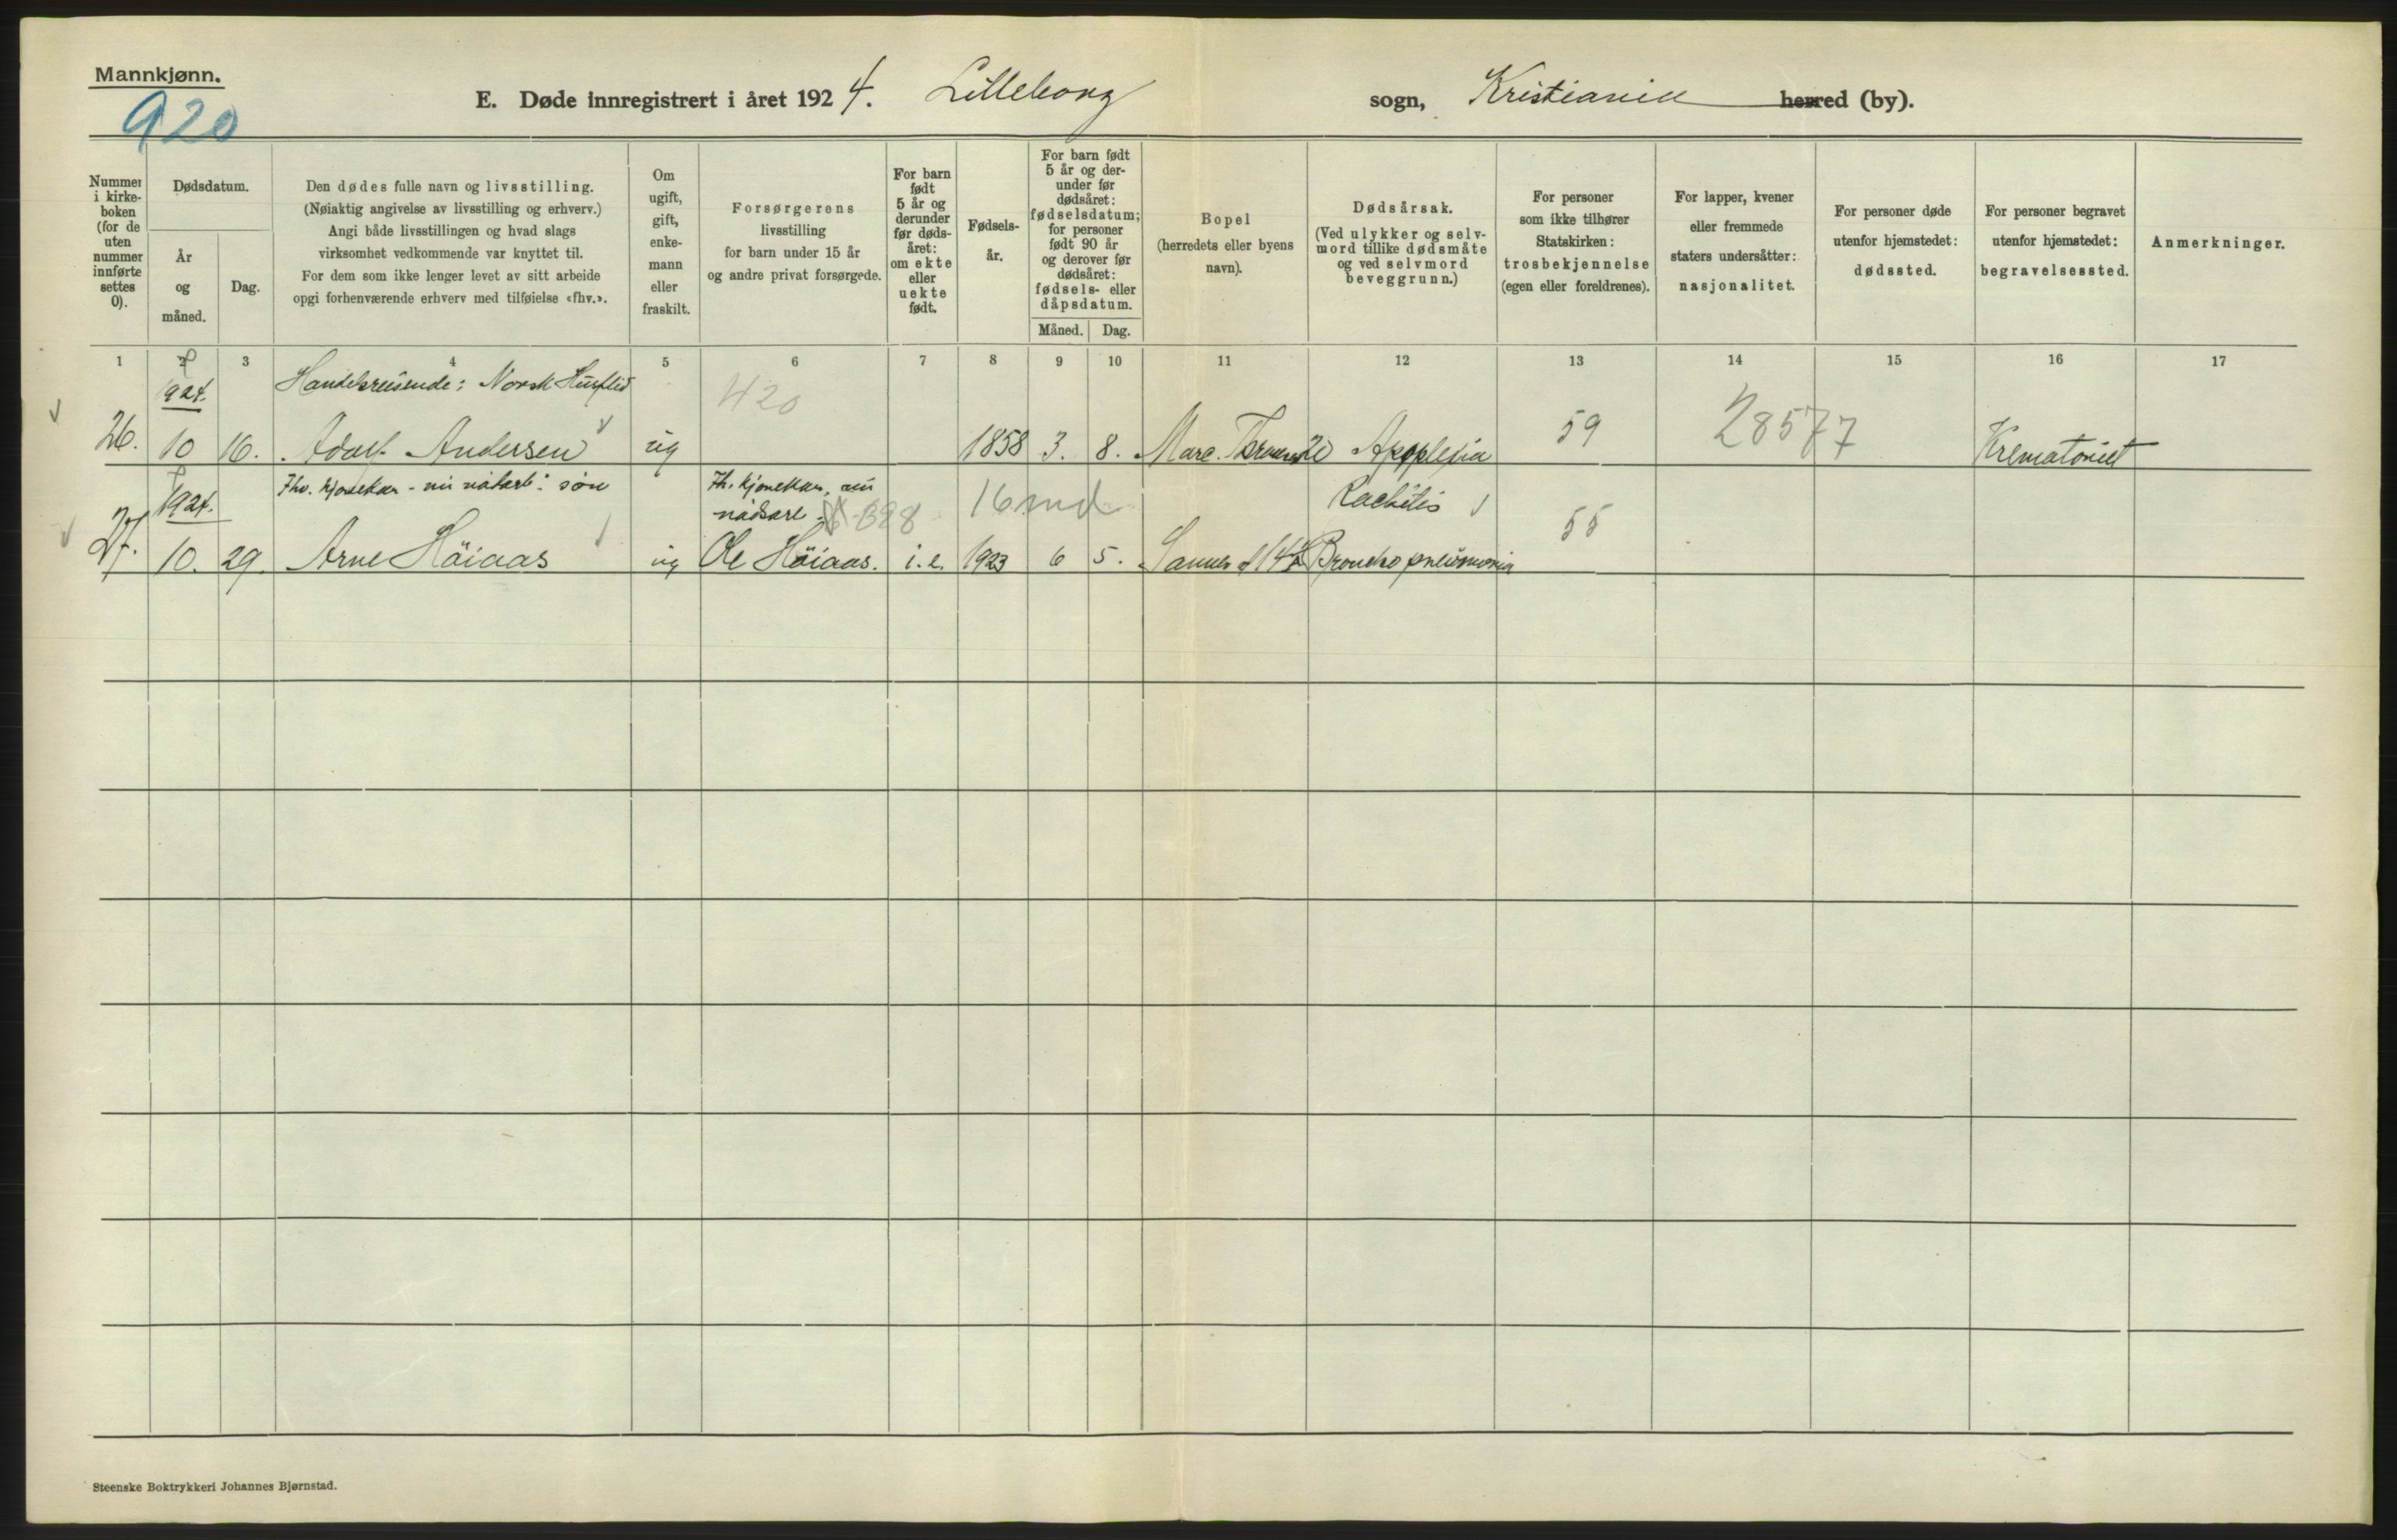 Mannkjønn.
920
E. Døde innregistrert i året 1924. Lilleborg sogn, Kristiania herred (by).
Nummer i kirke- boken (for de uten nummer innførte settes 0).
Dødsdatum.
År og måned.
Dag.
Den dødes fulle navn og livsstilling.
(Nøiaktig angivelse av livsstilling og erhverv.)
Angi både livsstillingen og hvad slags
virksomhet vedkommende var knyttet til.
For dem som ikke lenger levet av sitt arbeide
opgi forhenværende erhverv med tilføielse «fhv.».
Om ugift, gift, enke- mann eller fraskilt.
Forsørgerens
livsstilling
for barn under 15 år
og andre privat forsørgede.
For barn født 5 år og derunder før døds- året: om ekte eller uekte født.
Fødsels- år.
For barn født 5 år og der- under før dødsåret: fødselsdatum; for personer født 90 år og derover før dødsåret: fødsels- eller dåpsdatum.
Måned. Dag.
Bopel
(herredets eller byens
navn).
Dødsårsak.
(Ved ulykker og selv-
mord tillike dødsmåte
og ved selvmord
beveggrunn.)
For personer
som ikke tilhører
Statskirken:
trosbekjennelse
(egen eller foreldrenes).
For lapper, kvener
eller fremmede
staters undersåtter:
nasjonalitet.
For personer døde
utenfor hjemstedet:
dødssted.
For personer begravet
utenfor hjemstedet:
begravelsessted.
Anmerkninger.
1 2 3 4 5 6 7 8 9 10 11 12 13 14 15 16 17
1924. Handelsreisende: Norsk Husflid 420
26. 10 16. Adolf Andersen ug 1858 3. 8. Marc. Thranes Apoplexia 59 28577 Krematoriet
1924. Fhv. søn Fh. 398 16 md Rachitis
27. 10. 29. Arne Höiaas ug Ole Höiaas. i.e. 1923 6 5. Bronchopneumonia 55
Steenske Boktrykkeri Johannes Bjørnstad.